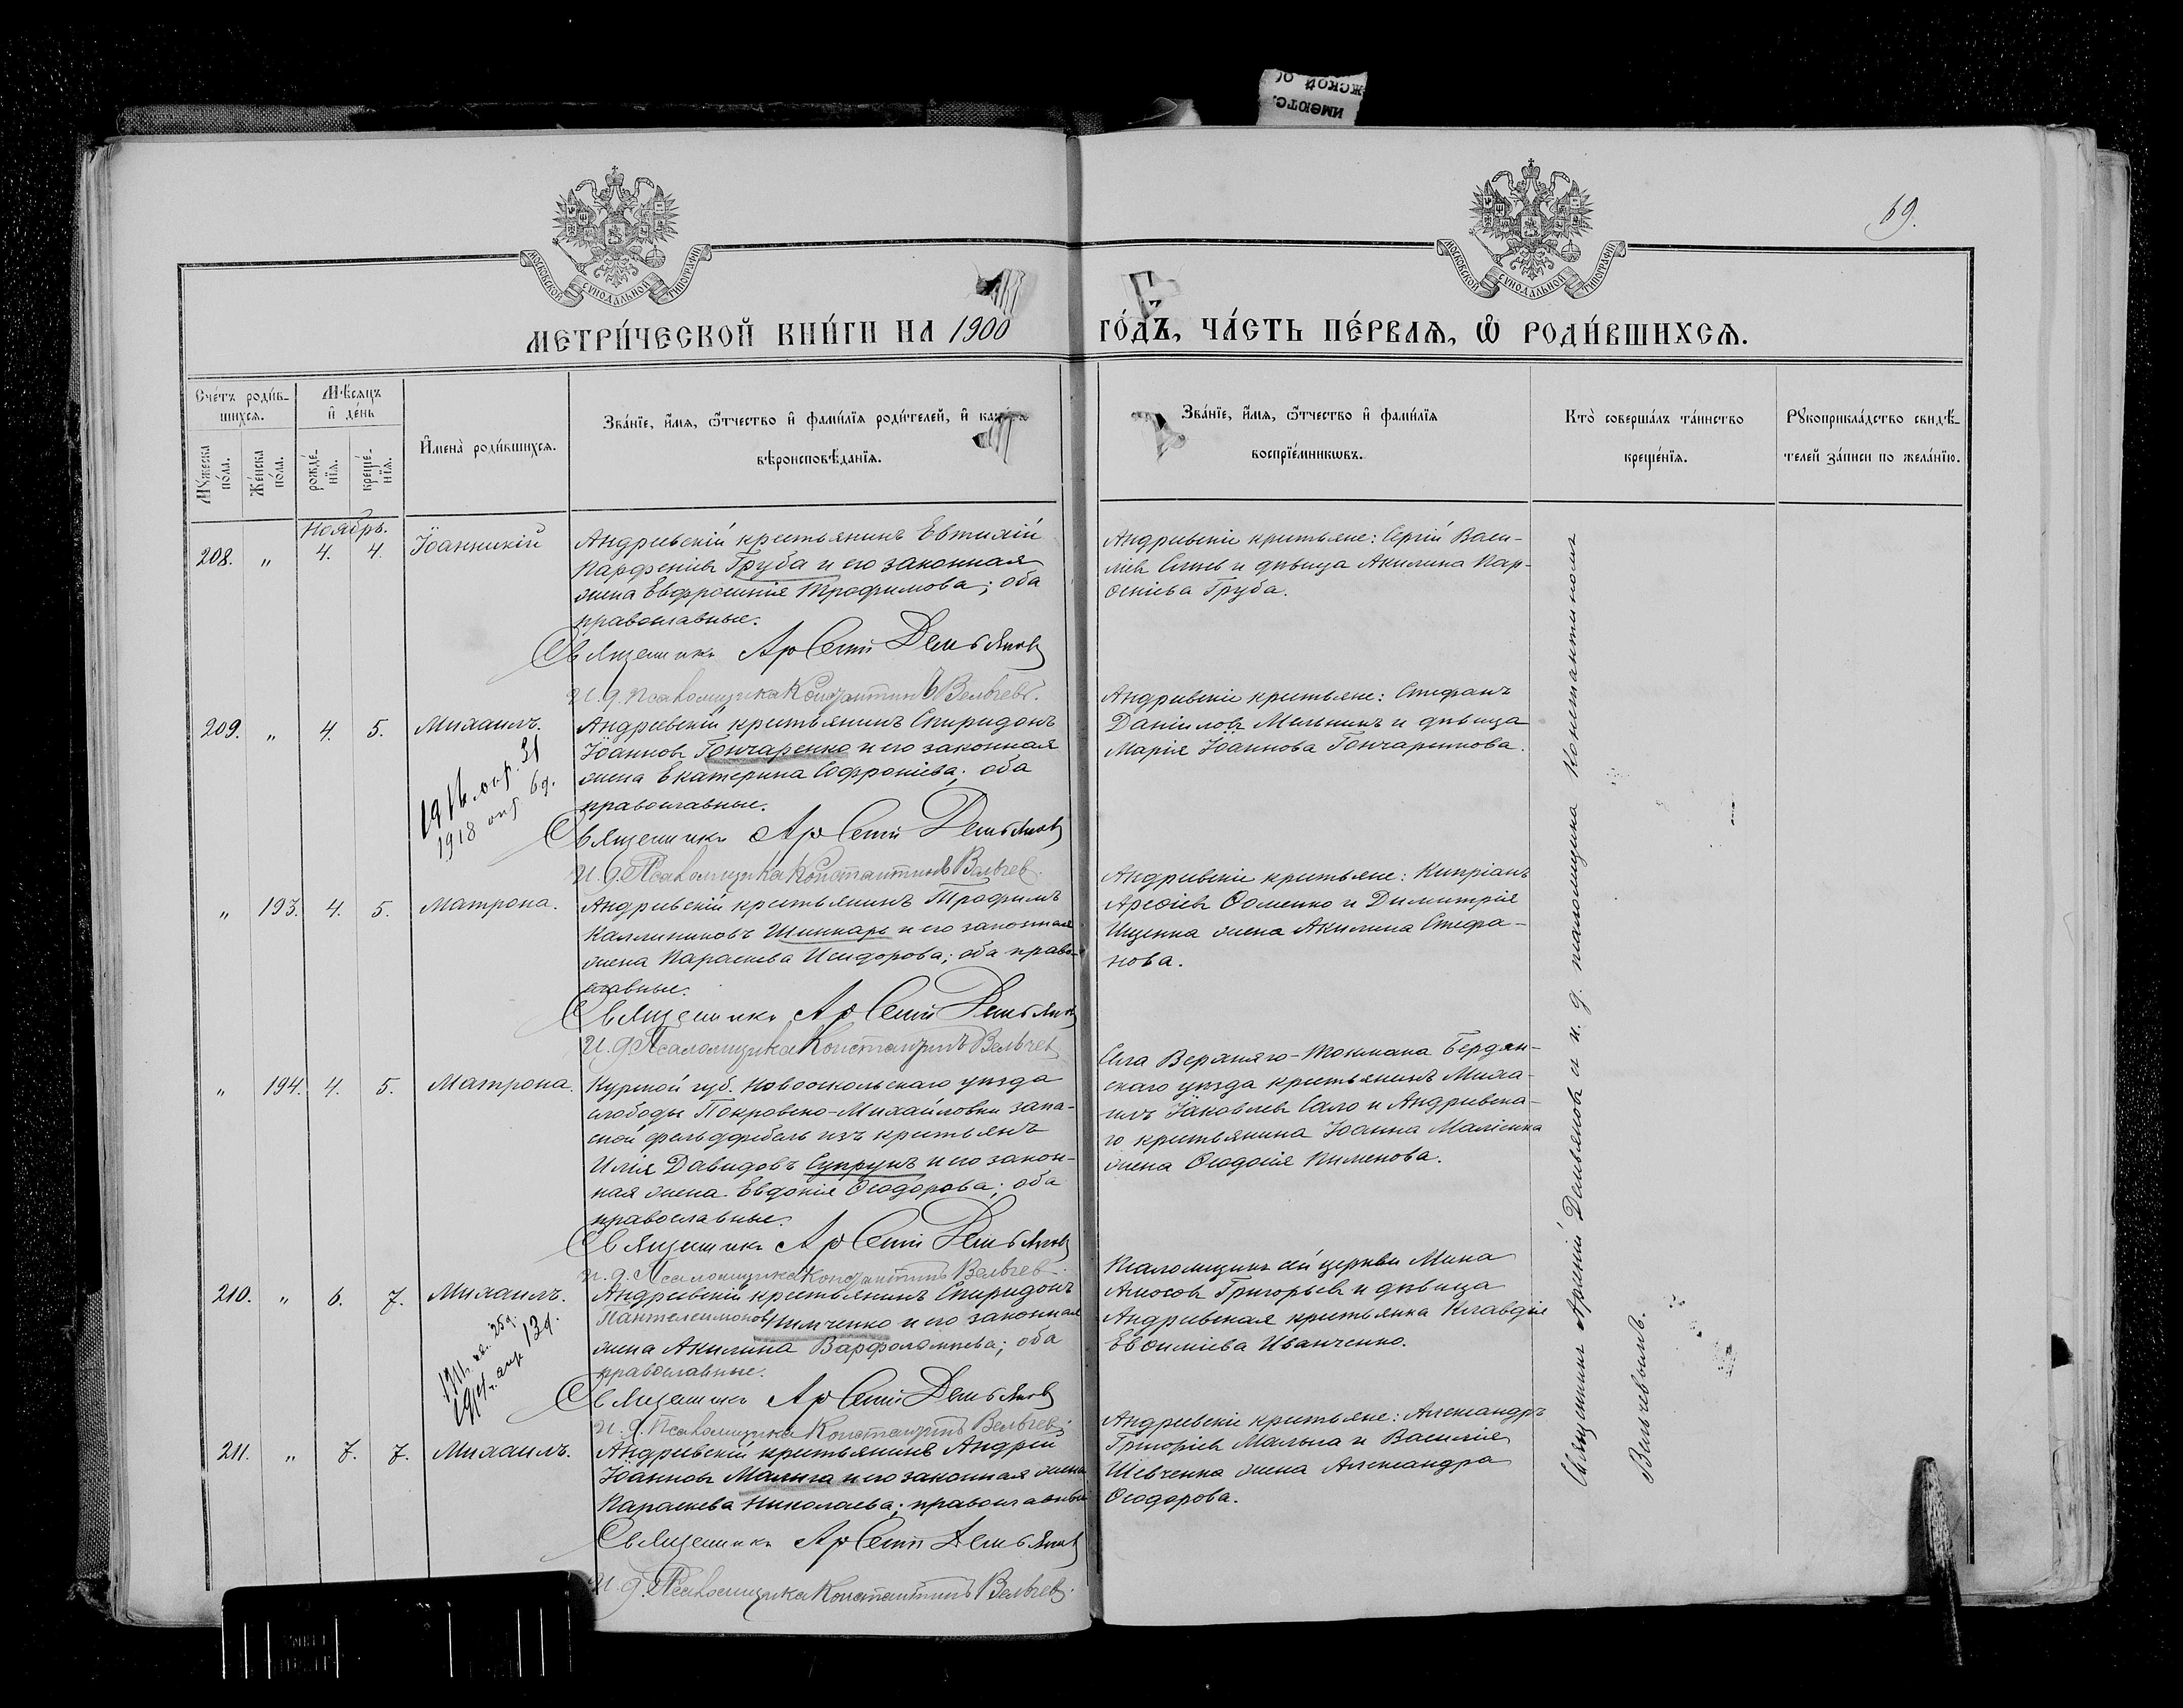 69.
МОСКОВСКОЙ СѴНОДАЛЬНОЙ ТИПОГРАФІИ
МОСКОВСКОЙ СѴНОДАЛЬНОЙ ТИПОГРАФІИ
МЕТРИ́ЧЕСКОЙ КНИ́ГИ НА 1900
ГО́ДЪ, ЧА́СТЬ ПЕ́РВАЯ, Ѡ҆ РОДИ́ВШИХСЯ.
Сче́тъ роди́в-
шихся.
Мѣ́сяцъ
и҆ де́нь
Мꙋ́жеска по́ла.
Же́нска по́ла.
рожде́-
нїя.
креще́-
нїя.
И҆мена̀ роди́вшихся.
Зва́нїе, и҆́мя, ѻ҆́тчество и҆ фами́лїя роди́телей, и҆
вѣроисповѣ́данїя.
Зва́нїе, и҆́мя, ѻ҆́тчество и҆ фами́лїя
воспрїе́мникѡвъ.
Кто̀ соверша́лъ та́инство
креще́нїя.
Рꙋкоприкла́дство свидѣ́-
телей за́писи по жела́нїю.
Ноябрь.
208. „ 4. 4. Іоанникій
Андреевскій крестьянинъ Евтихій
Парфеніевъ Груба и его законная
жена Евфросинія Трофимова; оба
православные.
Священникъ Арсеній Демьянов
И. д. псаломщика Константинъ Вельчевъ.
Андреевскіе крестьяне: Сергій Васи-
ліевъ и дѣвица Акилина Пар-
ѳеніева Груба.
209. „ 4. 5. Михаилъ.
Андреевскій крестьянинъ Спиридонъ
Іоанновъ Гончаренко и его законная
жена Екатерина Софроніева; оба
православные.
Священникъ Арсеній Демьянов
И. д. Псаломщика Константинъ Вельчев.
1918
Андреевскіе крестьяне: Стефанъ
Даніиловъ Мельникъ и дѣвица
Марія Іоаннова Гончаренкова.
„ 193. 4. 5. Матрона.
Андреевскій крестьянинъ Трофимъ
Каллиниковъ Шинкарь и его законная
жена Параскева Исидорова; оба право-
славные.
Священникъ Арсеній Демьянов
И. д. Псаломщика Константинъ Вельчев
Андреевскіе крестьяне: Кипріанъ
Ареѳіевъ Ѳоменко и Димитрія
Ищенка жена Акилина Стефа-
нова.
„ 194. 4. 5. Матрона.
Курской губ. Новооскольскаго уѣзда
слободы Покровско-Михайловки запа-
сной фельдфебель изъ крестьянъ
Илія Давидовъ Супрунъ и его закон-
ная жена Евдокія Ѳеодорова; оба
православные.
Священникъ Арсеній Демьянов
И. д. Псаломщика Константинъ Вельчев.
Села Верхняго-Токмака Бердян-
скаго уѣзда крестьянинъ Миха-
илъ Іаковлевъ Сало и Андреевска-
го крестьянина Іоанна Малієнка
жена Ѳеодосія Пименова.
210. „ 6. 7. Михаилъ.
Андреевскій крестьянинъ Спиридонъ
Пантелеимоновъ и его законная
жена Акилина Варфоломѣева; оба
православные.
Священникъ Арсеній Демьянов
И. д. Псаломщика Константинъ Вельчев.
Псаломщикъ сей церкви Мина
Амосовъ Григорьевъ и дѣвица
Андреевская крестьянка Клавдія
Евѳиміева Иванченко.
211. „ 7. 7. Михаилъ.
Андреевскій крестьянинъ Андрей
Іоанновъ Малыга и его законная жена
Параскева Николаева; православные
Священникъ Арсеній Демьянов
И. д. Псаломщика Константинъ Вельчев.
Андреевскіе крестьяне: Александръ
Григоріевъ Малыга и Василія
Шевченка жена Александра
Ѳеодорова.
Священникъ Арсеній Демьяновъ и и. д. псаломщика Константинъ
Вельчевъ.